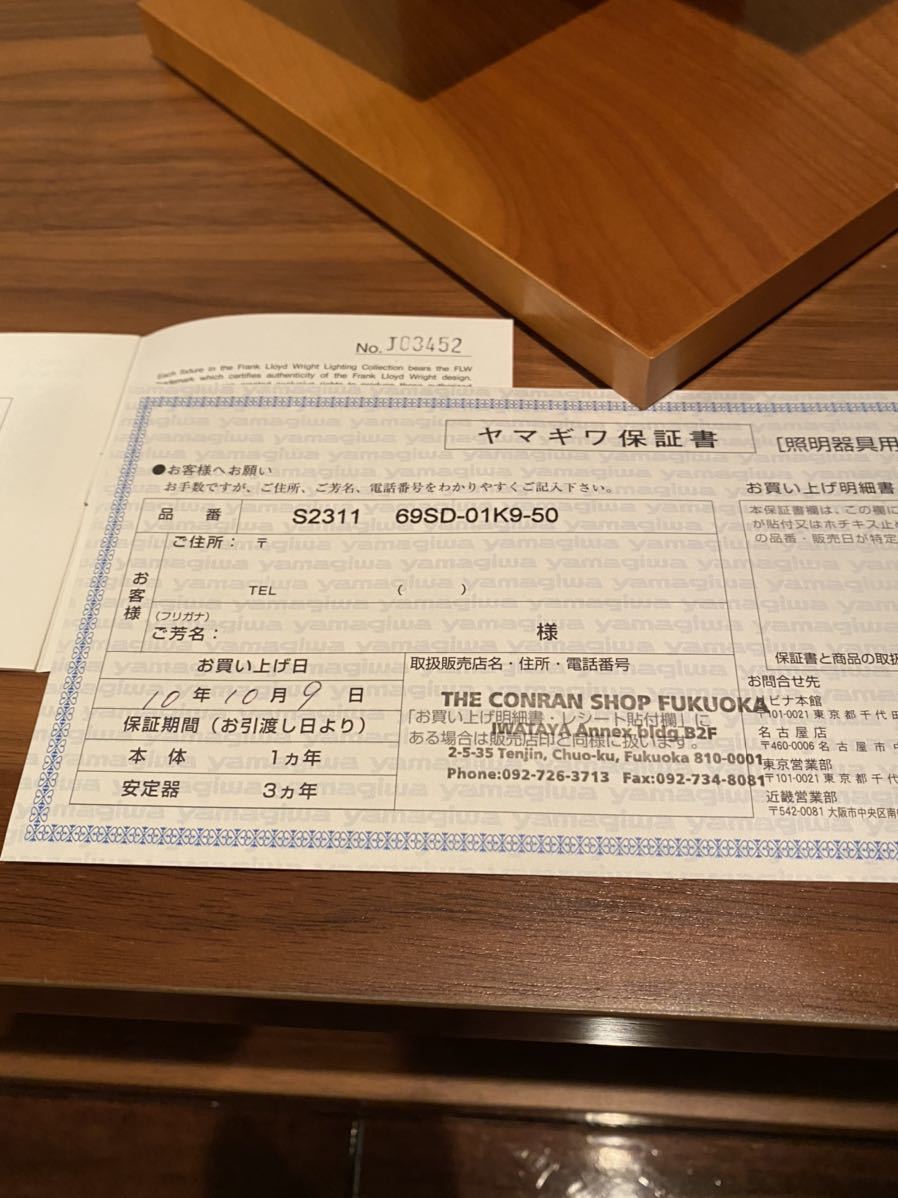 No. J03452
Each fixture in the Frank Lloyd Wright Lighting Collection bears the FLW
trademark which certifies authenticity of the Frank Lloyd Wright design.
ヤマギワ保証書
[照明器具用
●お客様へお願い
お手数ですが、ご住所、ご芳名、電話番号をわかりやすくご記入下さい。
品 番 S2311 69SD-01K9-50
お客様
ご住所：〒
TEL ( )
(フリガナ)
ご芳名： 様
お買い上げ日
10年10月9日
保証期間（お引渡し日より）
本 体 1ヵ年
安定器 3ヵ年
取扱販売店名・住所・電話番号
THE CONRAN SHOP FUKUOKA
「お買い上げ明細書・レシート貼付欄」に
IWATAYA Annex bldg B2F
ある場合は販売店印と同様に扱います。
2-5-35 Tenjin, Chuo-ku, Fukuoka 810-0001
Phone:092-726-3713 Fax:092-734-8081
お買い上げ明細書
本保証書欄は、この欄に
が貼付又はホチキス止め
の品番・販売日が特定
保証書と商品の取扱
お問合せ先
ビナ本館
〒101-0021 東京都千代田
名古屋店
〒460-0006 名古屋市中
東京営業部
〒101-0021 東京都千代
近畿営業部
〒542-0081 大阪市中央区南